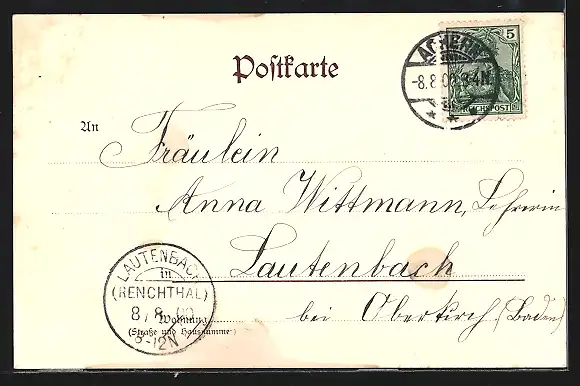 Postkarte
ACHERN
-8.8.00.3-4N
5
REICHSPOST
An
Fräulein
Anna Wittmann, Lehrerin
Lautenbach
bei Oberkirch (Baden)
LAUTENBACH
in
(RENCHTHAL)
8/8.00
8-12N
Wohnung
(Straße und Hausnummer)